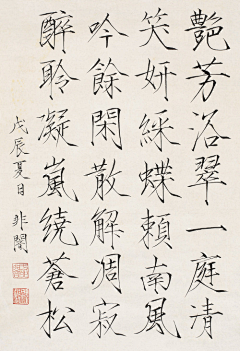 艷芳洛翠一庭清
笑妍綵蝶賴南風
吟餘閑散解凋寂
醉聆凝嵐繞蒼松
戊辰夏日 非闇